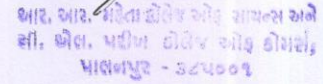 આર. આર. મહેતા કોલેજ ઓફ સાયન્સ અને
સી. એલ. પરીખ કોલેજ ઓફ કોમર્સ,
પાલનપુર - ૩૮૫૦૦૧